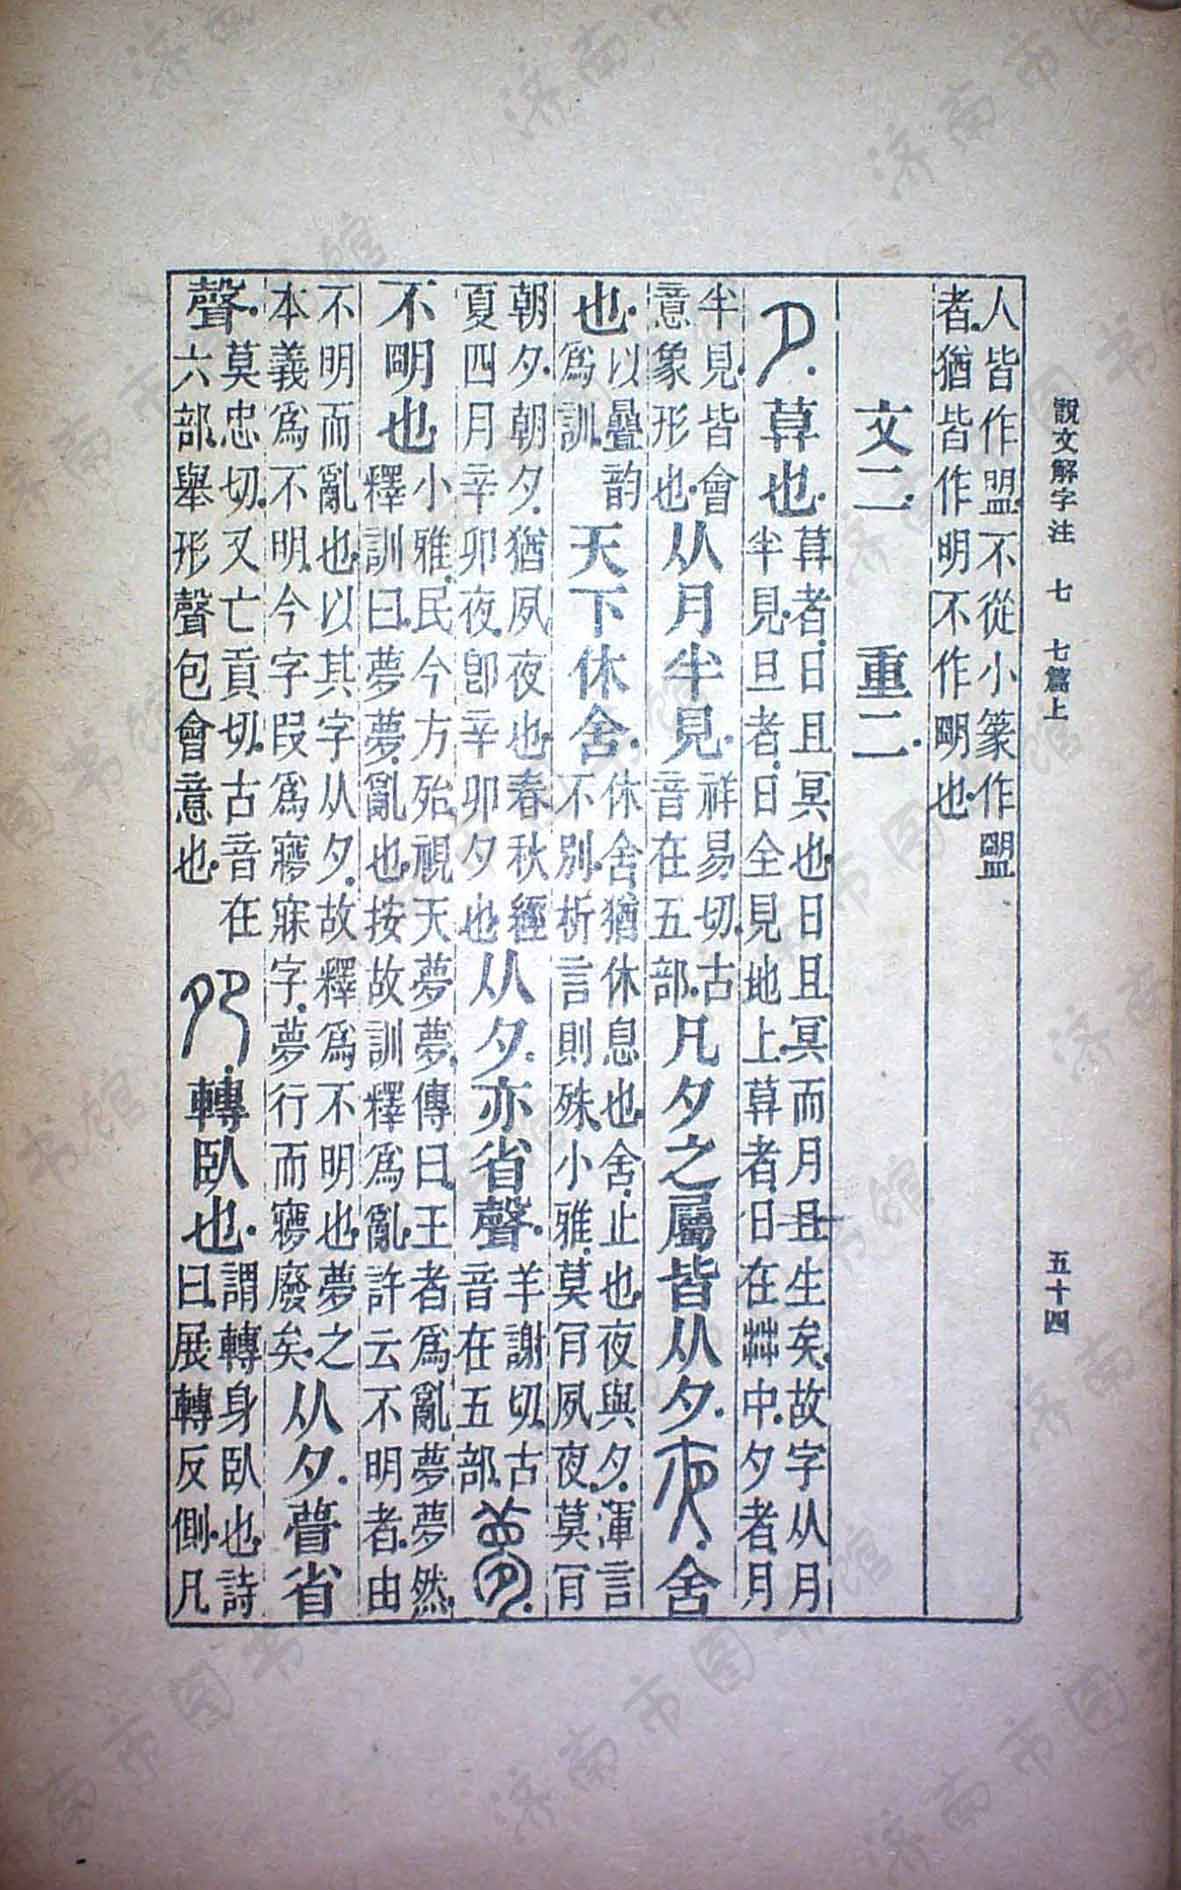 說文解字注 七 七篇上 五十四
人皆作盟.不從小篆作𥂗者.猶皆作明不作朙也.
文二 重二.
夕.莫也.莫者.日且冥也.日且冥而月且生矣.故字从月半見.旦者.日全見地上.莫者.日在茻中.夕者.月
半見.皆會意象形也.从月半見.祥易切.古音在五部.凡夕之屬皆从夕.夜.舍
也.以曡韵爲訓.天下休舍.休舍猶休息也.舍.止也.夜與夕.渾言不別.析言則殊.小雅.莫肎夙夜.莫肎
朝夕.朝夕.猶夙夜也.春秋經夏四月辛卯夜.卽辛卯夕也.从夕.亦省聲.羊謝切.古音在五部.夢.
不朙也.小雅.民今方殆.視天夢夢.傳曰.王者爲亂夢夢然.釋訓曰.夢夢.亂也.按故訓釋爲亂.許云不明者.由
不明而亂也.以其字从夕.故釋爲不明也.夢之本義爲不明.今字叚爲㝱寐字.夢行而㝱廢矣.从夕.瞢省
聲.莫忠切.又亡貢切.古音在六部.舉形聲包會意也.夗.轉臥也.謂轉身臥也.詩曰.展轉反側.凡
济南市图书馆